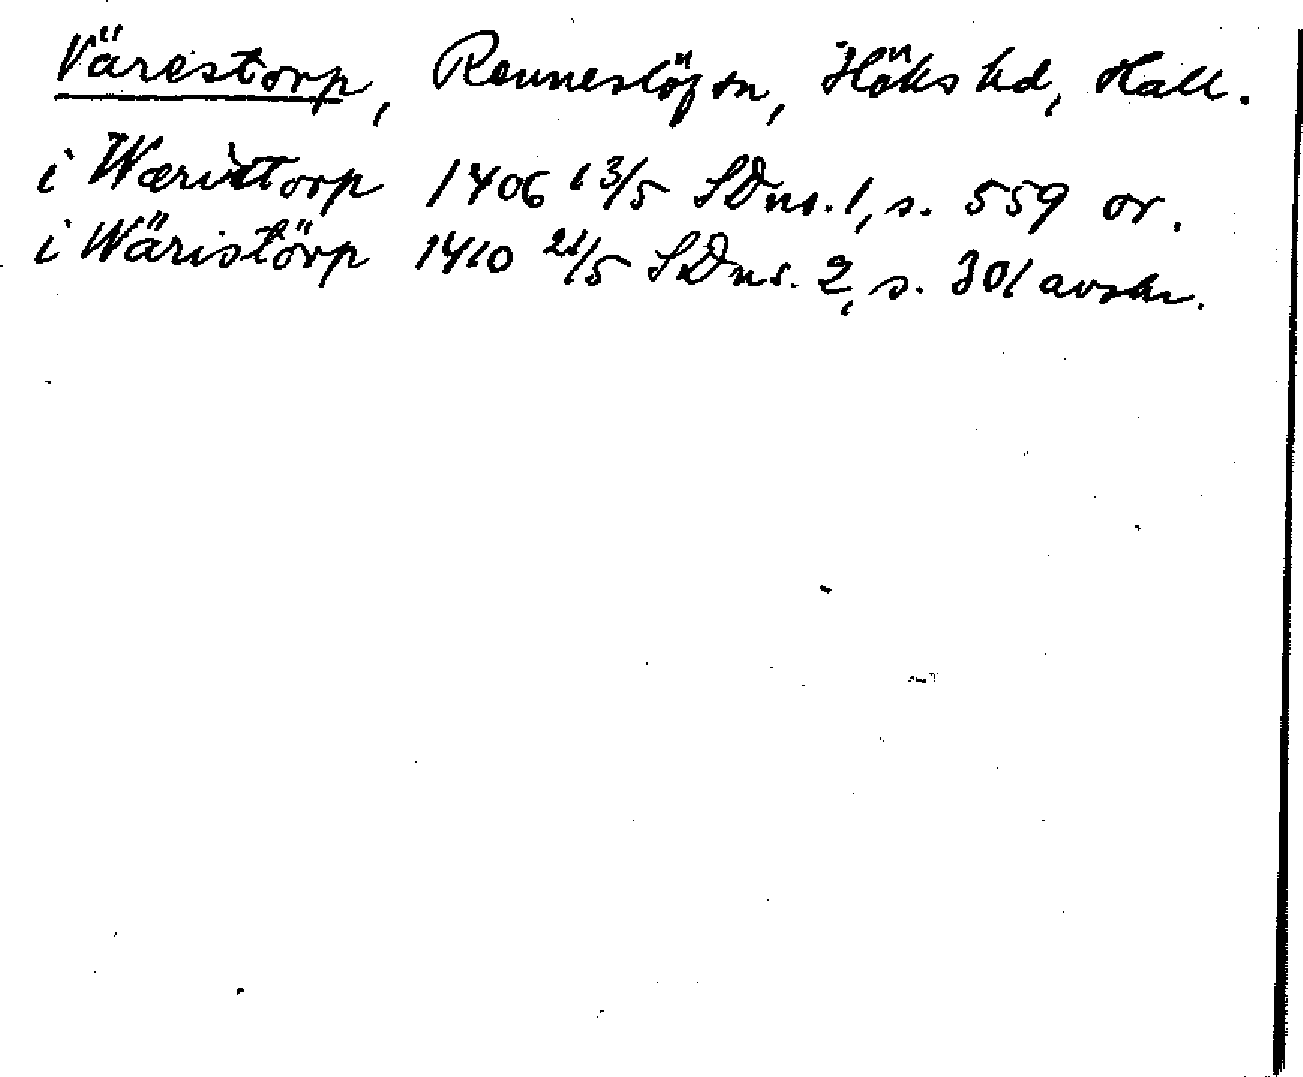 Värestorp, Renneslöfs sn, Höks hd, Hall.
i Wæristtorp 1406 13/5 SDns. 1, s. 559 or.
i Wäristörp 1410 21/5 SDns. 2, s. 301 avskr.